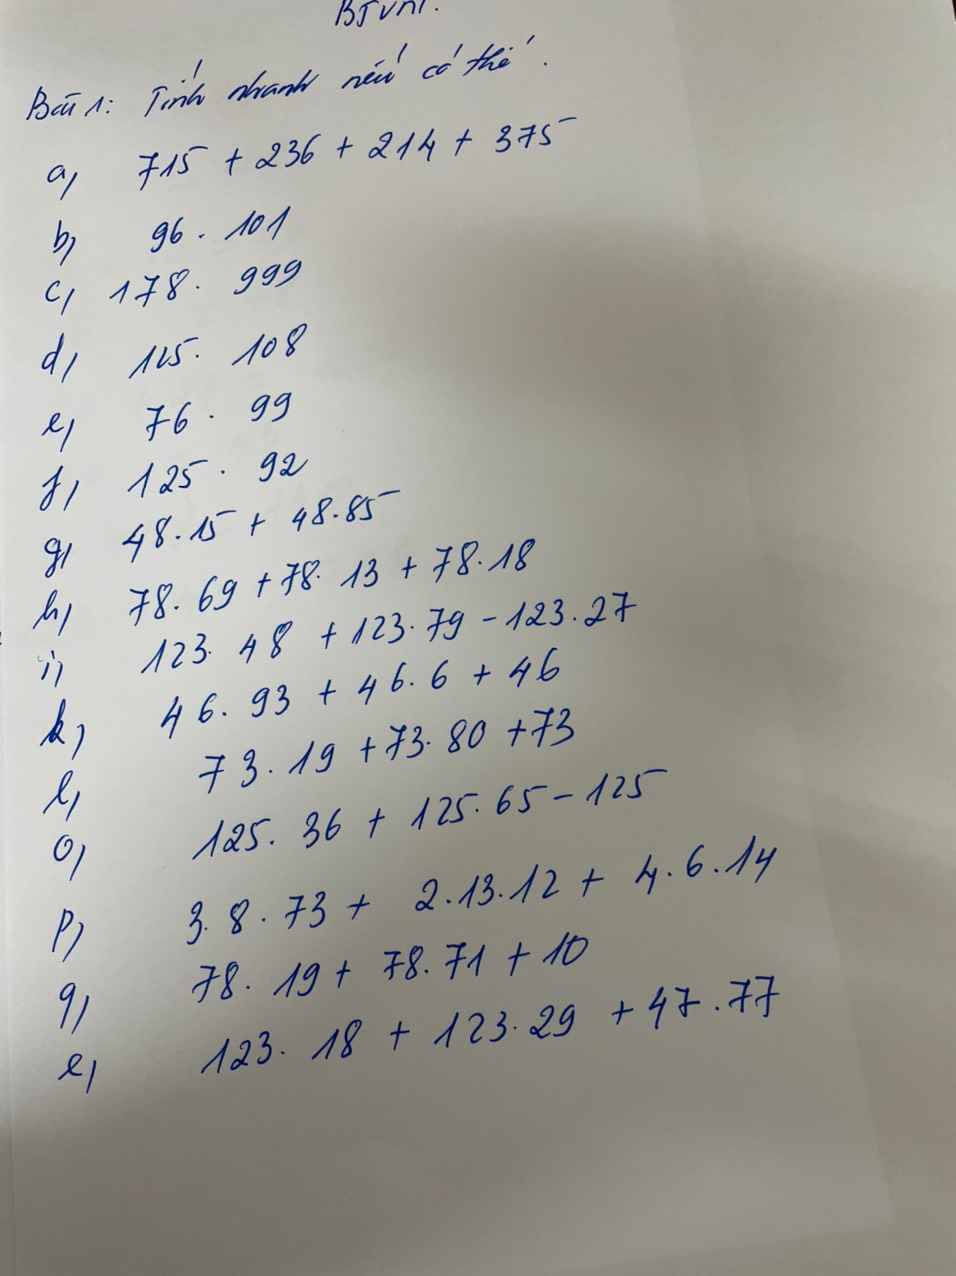 BTVN.
Bài 1: Tính nhanh nếu có thể.
a, 715 + 236 + 214 + 375
b, 96 . 101
c, 178 . 999
d, 125 . 108
e, 76 . 99
f, 125 . 92
g, 48.15 + 48.85
h, 78.69 + 78.13 + 78.18
i, 123.48 + 123.79 - 123.27
k, 46.93 + 46.6 + 46
l, 73.19 + 73.80 + 73
o, 125.36 + 125.65 - 125
p, 3.8.73 + 2.13.12 + 4.6.14
q, 78.19 + 78.71 + 10
e, 123.18 + 123.29 + 47.77